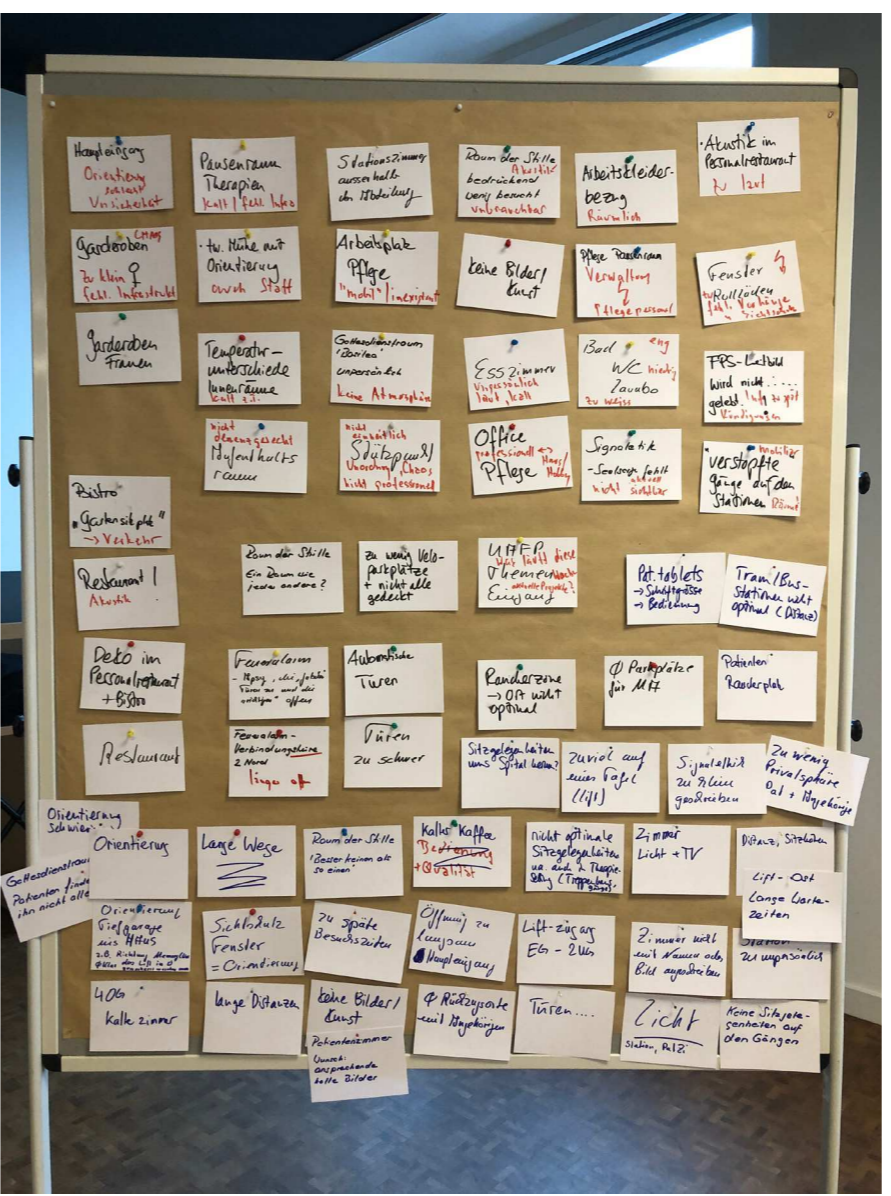 Haupteingang
Orientierung
schlecht
Unsicherheit
Pausenraum
Therapien
kalt / fehl. Infra
Stationszimmer
ausserhalb
der Abteilung
Raum der Stille
Akustik
bedrückend
wenig besucht
unbrauchbar
Arbeitskleider-
bezug
Räumlich
· Akustik im
Personalrestaurant
zu laut
Garderoben CHAOS
zu klein ♀
fehl. Infrastrukt
· tw. Mühe mit
Orientierung
auch Staff
Arbeitsplatz
Pflege
"mobil" / inexistent
Keine Bilder/
Kunst
Pflege Pausenraum
Verwaltung
Pflegepersonal
Fenster
tw Rollläden
fehl. Vorhänge
Sichtschutz
Garderoben
Frauen
Temperatur-
unterschiede
Innenräume
kalt z.T.
Gottesdienstraum
"Basilea"
unpersönlich
keine Atmosphäre
ESSZimmer
Unpersönlich
laut, kalt
Bad eng
WC niedrig
Lavabo
zu weiss
FPS-Leitbild
wird nicht ....
gelebt. Info zu spät
Kündigungen
nicht
demenzgerecht
Aufenthalts
raum
nicht
einheitlich
Stützpunkt
Unordnung, Chaos
nicht professionell
Office
professionell ↔
Pflege
Signaletik
- Seelsorge fehlt
aktuell
nicht sichtbar
mobiliar
verstopfte
Gänge auf den
Stationen
Bistro
"Gartensitzplatz"
→ Verkehr
Restaurant /
Akustik
Raum der Stille
Ein Raum wie
jeder andere?
Zu wenig Velo-
parkplätze
+ nicht alle
gedeckt
läuft diese
Themen
aktuelle Projekte?
Eingang
Pat. tablets
→ Schriftgrösse
→ Bedienung
Tram/Bus-
Stationen nicht
optimal (Distanz)
Deko im
Personalrestaurant
+ Bistro
Feueralarm
Türen zu und die
"richtigen" offen
Automatische
Türen
Raucherzone
→ Ort nicht
optimal
Ø Parkplätze
für MA
Patienten
Raucherplatz
Restaurant
Feueralarm-
Verbindungstüre
2 Nord
länger off
Türen
zu schwer
Sitzgelegenheiten
ums Spital herum?
Zuviel auf
einer Tafel
(Lift)
Signaletik
zu klein
geschrieben
Zu wenig
Privatsphäre
Pat + Angehörige
Orientierung
schwierig
Gottesdienstraum
Patienten finden
ihn nicht alle
Orientierung
Lange Wege
Raum der Stille
"Besser keinen als
so einen"
Kalter Kaffee
Bedienung
+ Qualität
nicht optimale
Sitzgelegenheiten
ua. auch 2 Therapie-
Zimmer
Licht + TV
Distanz, Sitzhöhen
Lift-Ost
Lange Warte-
zeiten
Orientierung
Tiefgarage
ins Haus
Sichtschutz
Fenster
= Orientierung
Zu späte
Besuchszeiten
Öffnung zu
langsam
Haupteingang
Lift-zugang
EG - 2UG
Zimmer nicht
mit Namen oder
Bild angeschrieben
Station
zu unpersönlich
4OG
Kalte Zimmer
lange Distanzen
keine Bilder/
Kunst
Patientenzimmer
Wunsch:
ansprechende
helle Bilder
Ø Rückzugsorte
mit Angehörigen
Türen....
Licht
Station, PatZi.
Keine Sitzgele-
genheiten auf
den Gängen